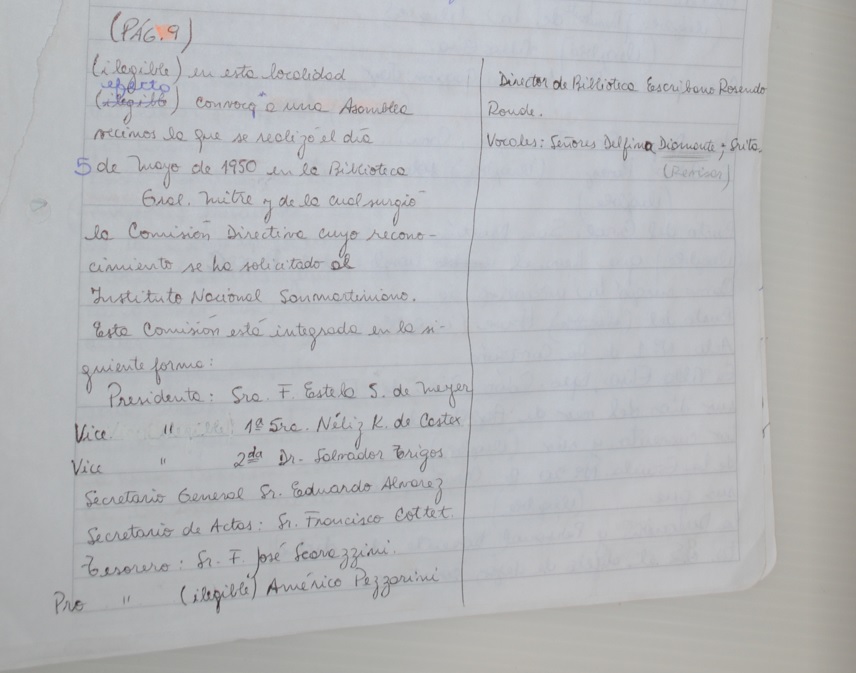 (PÁG. 9)
(ilegible) en esta localidad
efecto
(ilegible) convocó a una Asamblea
vecinos la que se realizó el día
5 de Mayo de 1950 en la Biblioteca
Gral. Mitre y de la cual surgió
la Comisión Directiva cuyo recono-
cimiento se ha solicitado al
Instituto Nacional Sanmartiniano.
Esta Comisión está integrada en la si-
guiente forma:
Presidenta: Sra. F. Estela S. de Meyer
Vice " 1ª Sra. Néliz K. de Castex
Vice " 2da Dr. Salvador Trigos
Secretario General Sr. Eduardo Alvarez
Secretario de Actas: Sr. Francisco Cottet.
Tesorero: Sr. F. José Scarazzini.
Pro " (ilegible) Américo Pezzarini
Director de Biblioteca Escribano Rosendo
Ronde.
Vocales: Señores Delfina Diamante y
(Revisar)